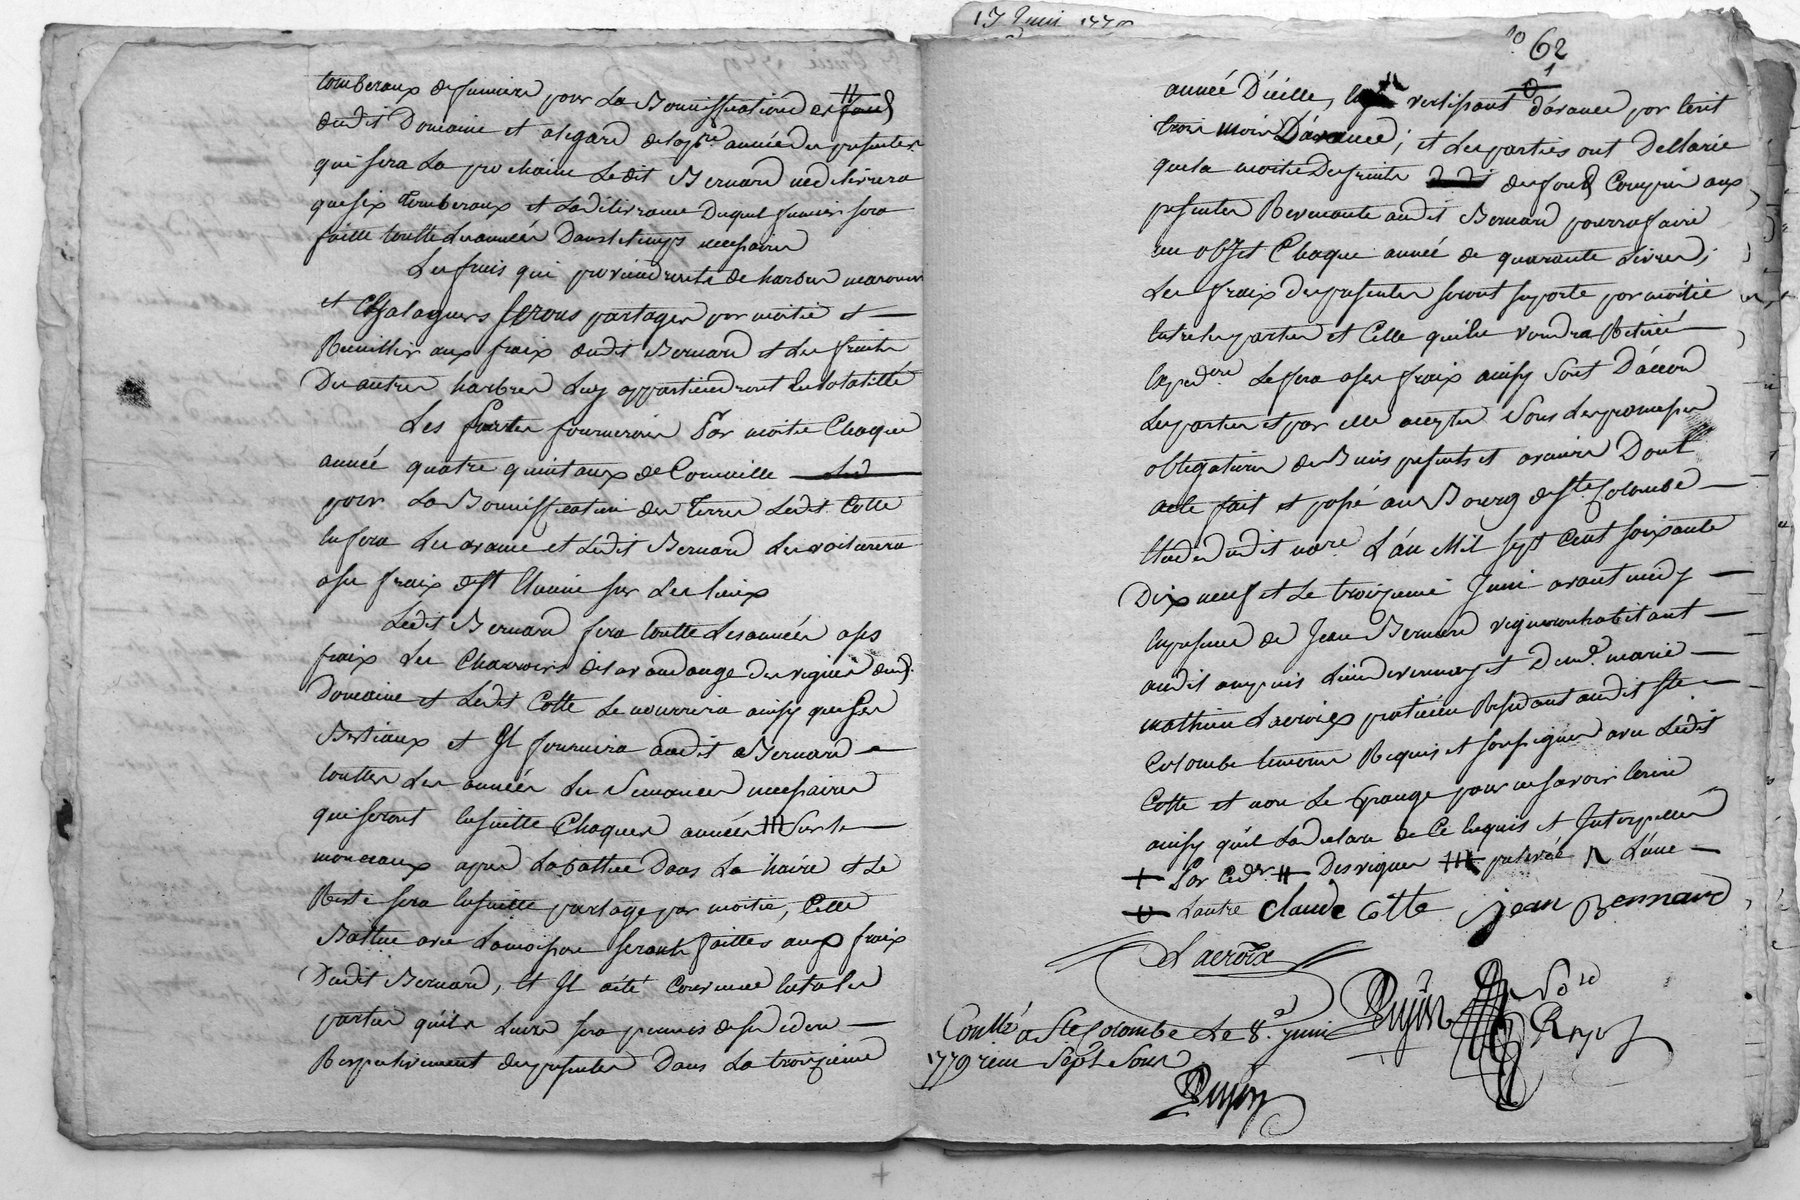 tomberaux de fumiere pour La Bonnissfication des fond
dudit Domaine et alegard de la pre année des presentes
qui sera La prochaine Ledit Bernard ne delivrera
que six Tomberaux et Ladelivrance Duquel fumier sera
faitte touttes Les années Dans le temps necessaire
Les fruis qui proviendronts de harbres maronniers
et Chalagniers serons partages par moitié et
Reeuillir aux fraix dudit Bernard et Les fruits
Des autres harbres Luy appartiendront En totalitté
Les parties fourniron Par moitie Chaque
année quatre quintaux de Cornaille
pour La Bonnissfication des Terres Ledit Cotte
En fera Les avance et Ledit Bernard Les voiturera
a ses fraix de St Etienne sur Les lieux
Ledit Bernard fera toutte Les années a ses
fraix Les Charrois de la vandange des vignes dud.
Domaine et Ledit Cotte Le nourrira ainsy que ses
Bestiaux et Il fournira audit Bernard
touttes Les années Les Semances necessaires
qui seront Ensuitte Chaques années Sur le
monceaux apres La battue Dans La haire et Le
Reste sera Ensuitte partage par moitie, Cette
Battue avec La moisson seront faittes aux fraix
Dudit Bernard, et Il a été Convenue Entre Les
parties quils Leurs sera permis de se dedire
Respectivement des presentes Dans La troizieme
17 Juin 1779
62
année D'icelle, En avertissant d'avance par Ecrit
trois mois D'avance; et Les parties ont Dellaré
que la moitie Des fruits des fond Compris aux
presentes Revenante audit Bernard pourra faire
un objet Chaque année de quarante Livres;
Les fraix des presentes seront suporte par moitié
Entre Les parties et Celle quelles voudra Retirer
Expedon Le fera a ses fraix ainsy Sont D'accord
Les parties et par elle accepte Sous Les promesses
obligations de Biens presents et avenir Dont
acte fait et passé au Bourg de Ste Colombe
Etude dudit nore L'an Mil sept Cent soixante
Dix neuf et Le troizieme Juin avant midy
En presence de Jean Bernard vigneron habitant
audit
mathieu Lacroix praticien Residant audit Ste
Colombe temoins Requis et soussignes avec Ledit
Cotte et non Le Grange pour ne savoir Ecrire
ainsy qu'il La declare de Ce Enquis et Interpelle
Par Des vignes prelevé L'une
Lautre Claude Cotte Jean Bernnard
Lacroix
Pujon
Conllé a Ste Colombe Le 8.e juin
1779 recu Sept Sous
Pujon